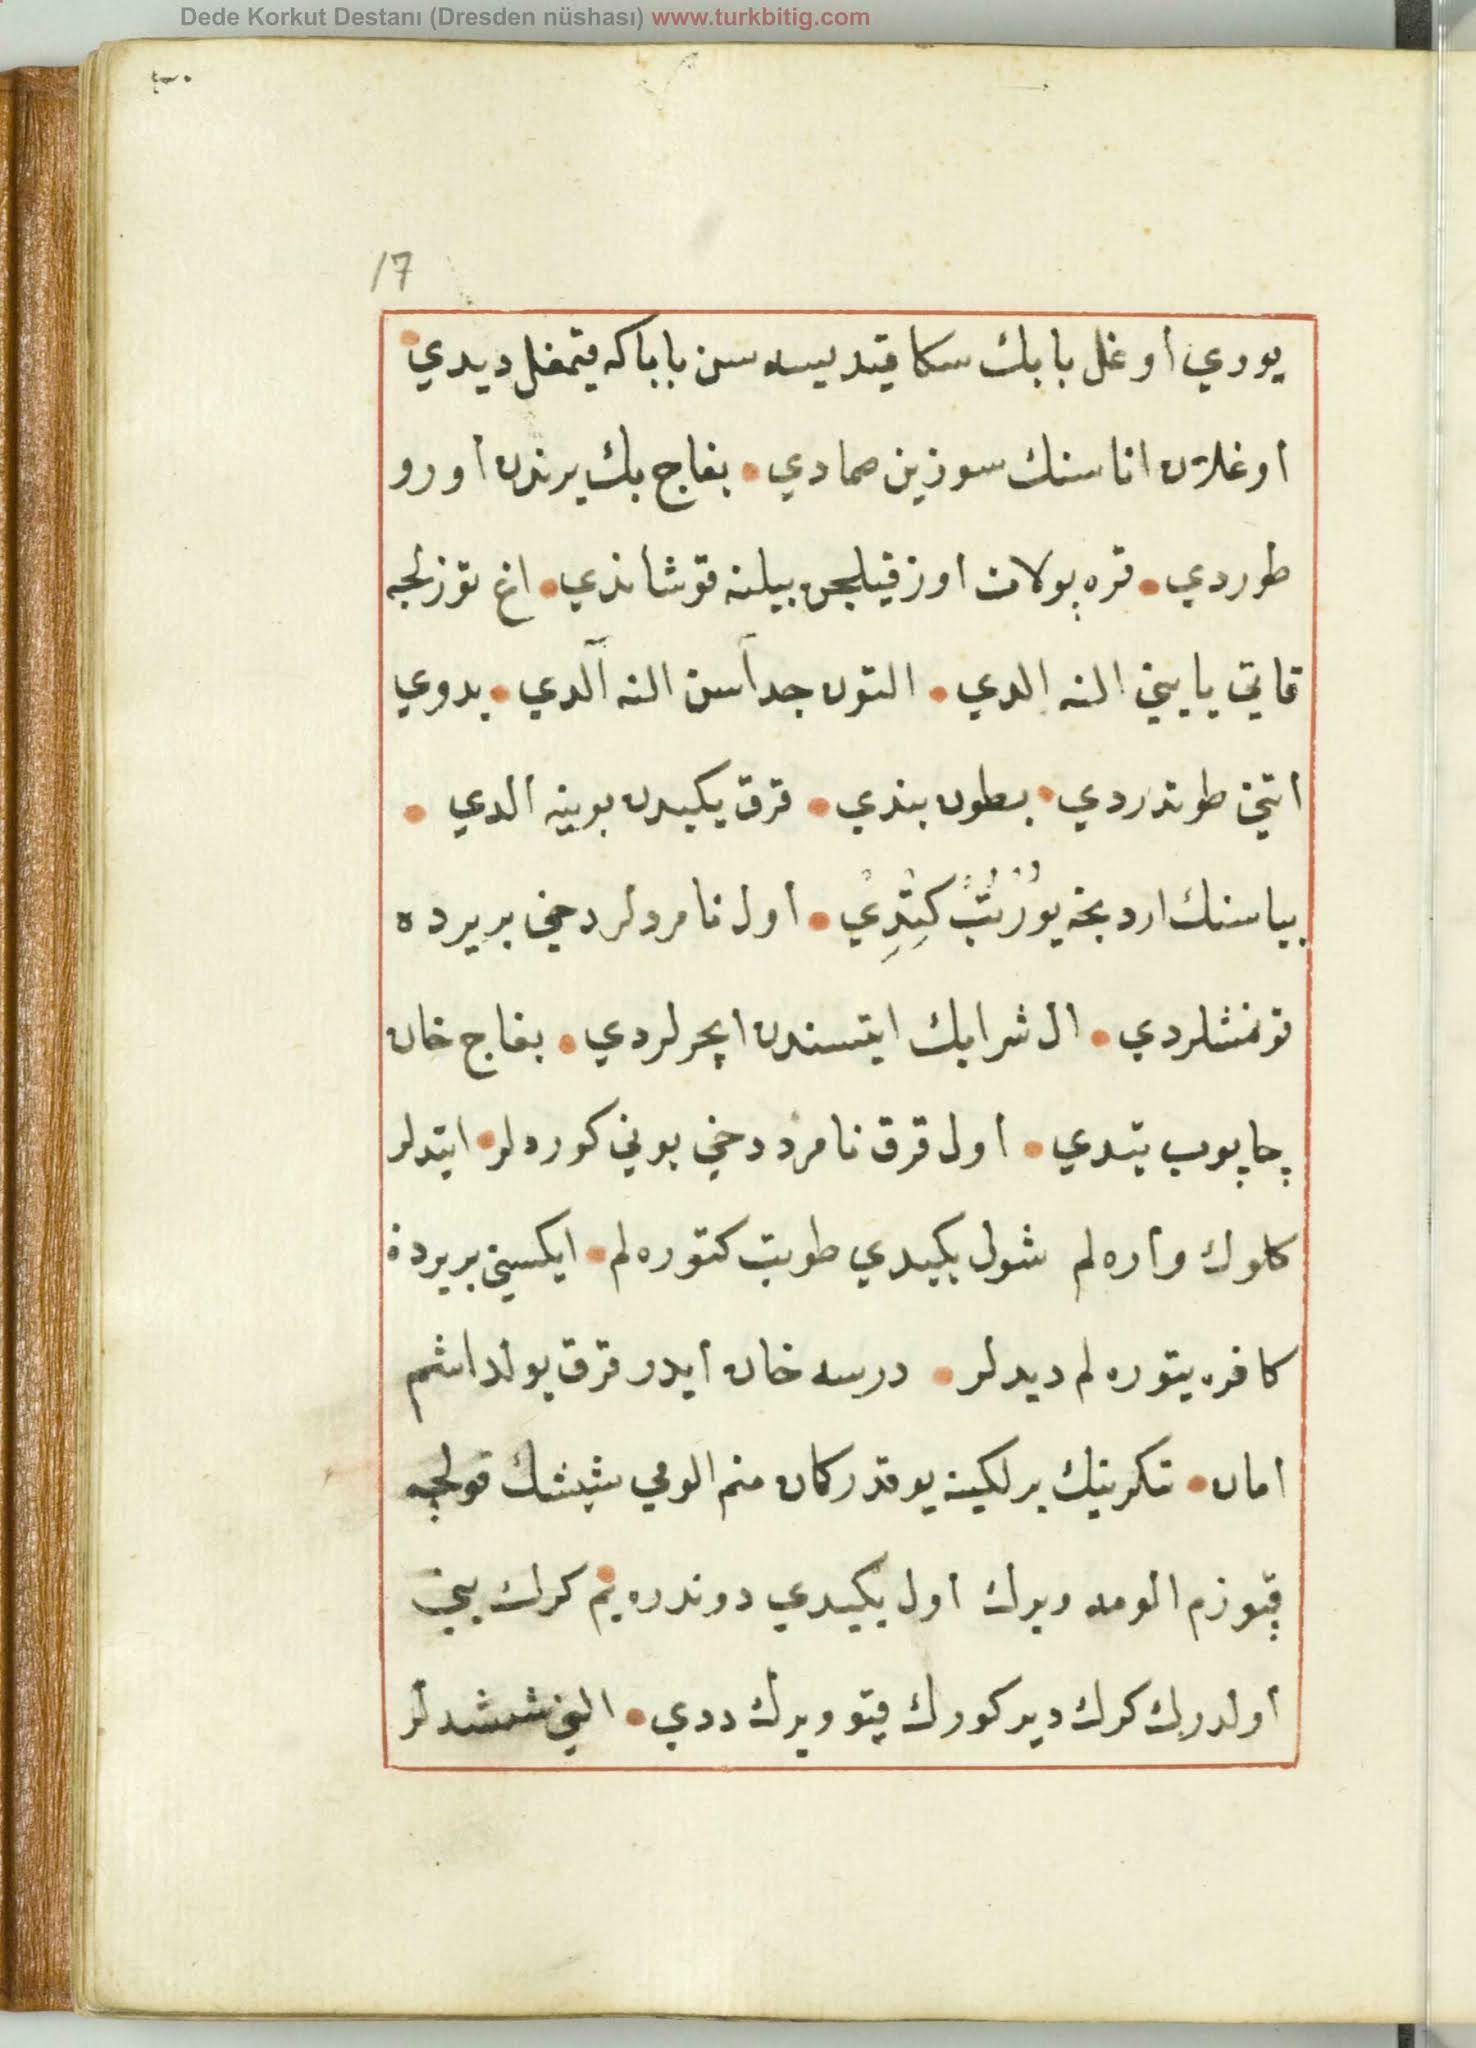 Dede Korkut Destanı (Dresden nüshası) www.turkbitig.com
17
يوري اوغل بابك سكا قيديسه سن باباكه قيمغل ديدي
اوغلان اناسنك سوزين صمادي • بغاج بك يرندن اورو
طوردي • قره پولات اوز قيلجن بيلنه قوشاندي • اغ توزلجه
قاتي ياييني النه الدي • التون جداسن النه آلدي • بدوي
اتيني طوتدردي • بطون بندي • قرق يكيدن بوينه الدي •
بباسنك اردنجه يُورُتُبْ كِتْدِي • اول نامردلر دخي بر يرده
قونمشلردي • ال شرابك ايتسندن ايچرلردي • بغاج خان
چاپوب يتدي • اول قرق نامرد دخي بوني كورديلر • ايتدلر
كلوك واره لم شول يكيدي طوتب كتوره لم • ايكسيني بر يرده
كافره يتوره لم ديدلر • درسه خان ايدر قرق يولداشم
امان • تكرينك برلكينه يوقدر كمان منم الومي شيشك قولچه
قپوزم الومه ويرك اول يكيدي دوندره يم • كرك بني
اولدرك كرك ديركورك قپو ويرك ددي • اليني ششدلر